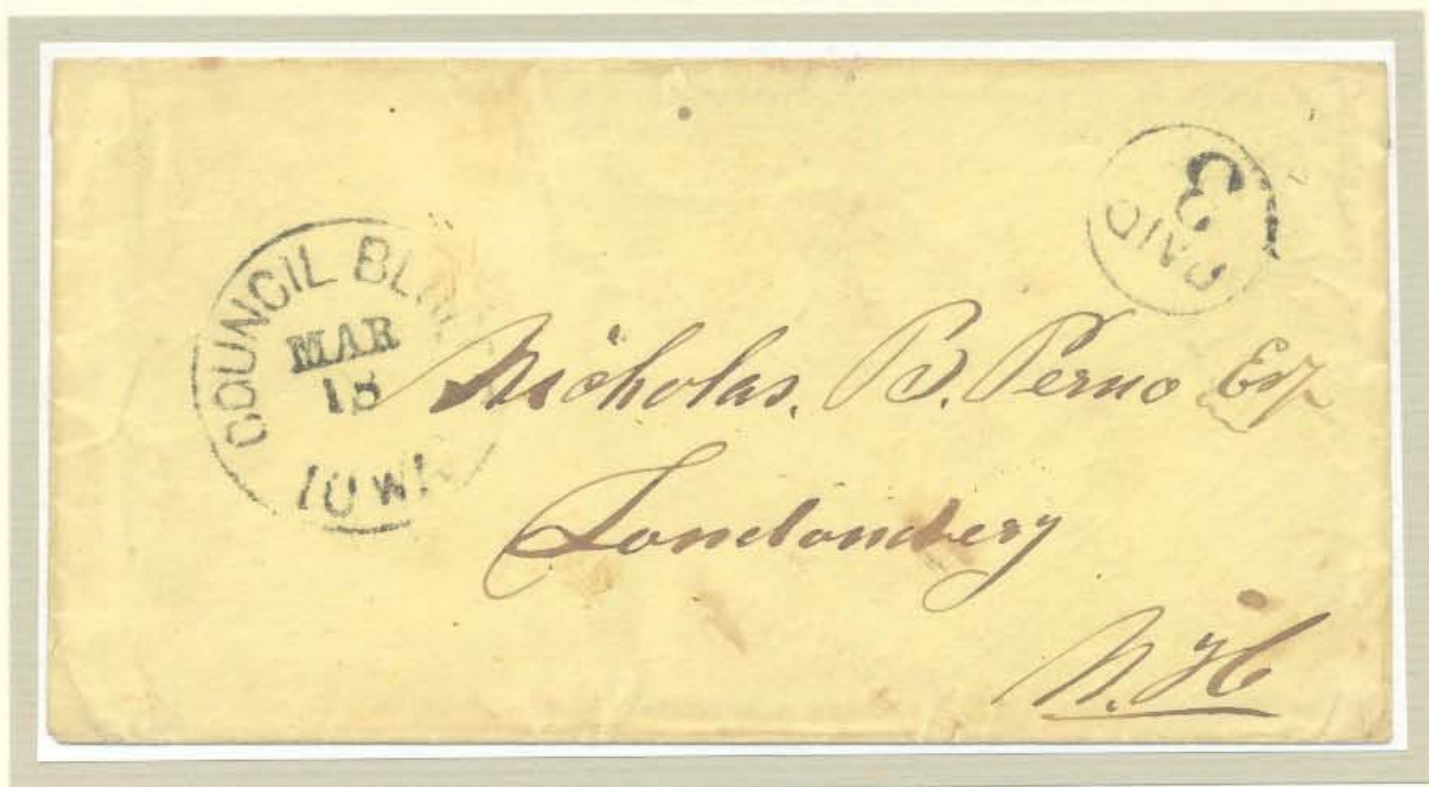 COUNCIL BLU
MAR
15
IOWA
PAID
3
Nicholas. B. Perno Esq
Londonderry
N. H